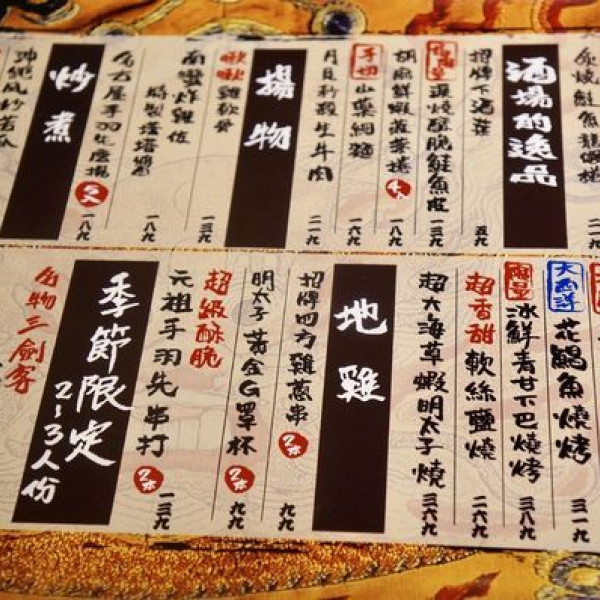 炙燒鮭魚龍蝦捲
二一九
酒場的逸品
招牌下酒菜
五九
超濃燒酥脆鮭魚皮
一三九
胡麻鮮蝦蔬菜捲
4入
一八九
手切
山藥細麵
一六九
月見新殺生牛肉
二一九
揚物
啾啾雞軟骨
一三九
南蠻炸雞佐
特製塔塔醬
一八九
名古屋手羽先唐揚
5入
一八九
炒煮
沖繩風炒苦瓜
大西洋
花鯛魚燒烤
三一九
限量
冰鮮青甘下巴燒烤
三八九
超香甜
軟絲鹽燒
二六九
超大海草蝦明太子燒
三六九
地雞
招牌四方雞蔥串
2本
九九
明太子黃金G罩杯
2本
九九
超級酥脆
元祖手羽先串打
2本
一三九
季節限定
2~3人份
名物三劍客